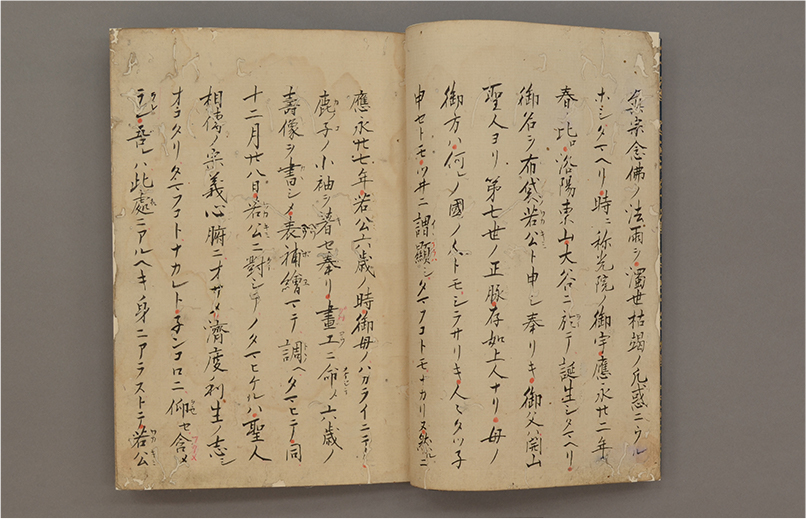 眞宗念佛ノ法雨ヲ濁世枯竭ノ凡惑ニウル
ホシタマヘリ時ニ称光院ノ御宇應永廿二年
春ノ比洛陽東山大谷ニ於テ誕生シタマヘリ
御名ヲ布袋若公ト申シ奉リキ御父ハ開山
聖人ヨリ第七世ノ正脉存如上人ナリ母ノ
御方ハ何レノ國ノ人トモシラサリキ人ミタツ子
申セトモツ井ニ謂顯シタマフコトモナカリヌ然ルニ
應永廿七年若公六歳ノ時御母ノハカライニテ
鹿子ノ小袖ヲ着セ奉リ畫工ニ命メ六歳ノ
壽像ヲ書シメ表補繪マテ調ヘタマヒテ同
十二月廿八日若公ニ對シテノタマヒケルハ聖人
相傳ノ宗義心腑ニオサメ濟度利生ノ志シ
オコタリタマフコトナカレト子ンコロニ仰セ含メ
ラレ吾レハ此處ニアルヘキ身ニアラストテ若公